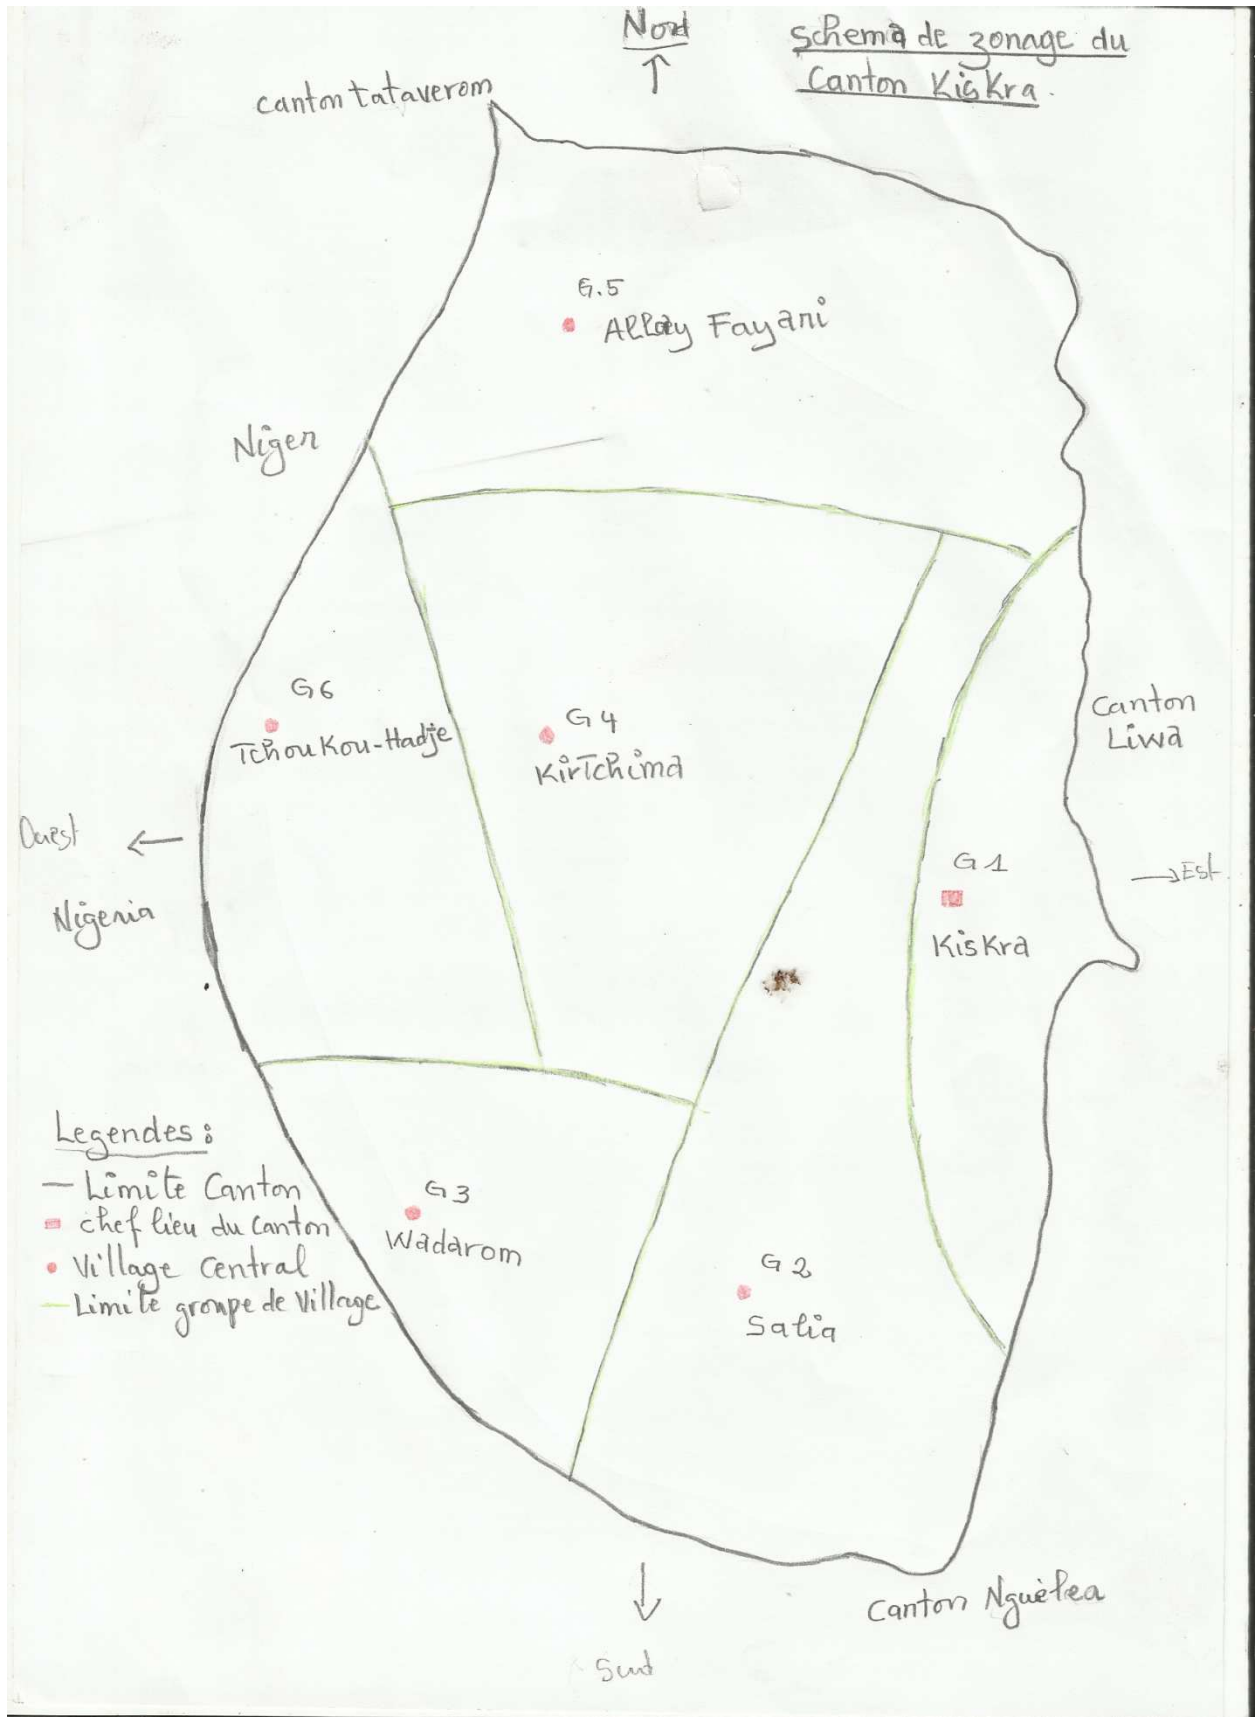 Nord
Schema de zonage du
Canton Kiskra.
Canton tataverom
G.5
Allay Fayani
Niger
G6
Tchoukou-Hadje
G4
Kirtchima
Canton
Liwa
Ouest
Nigeria
G1
Kiskra
Est
Legendes :
Limite Canton
chef lieu du Canton
Village Central
Limite groupe de Village
G3
Wadarom
G2
Salia
Canton Nguèlea
Sud